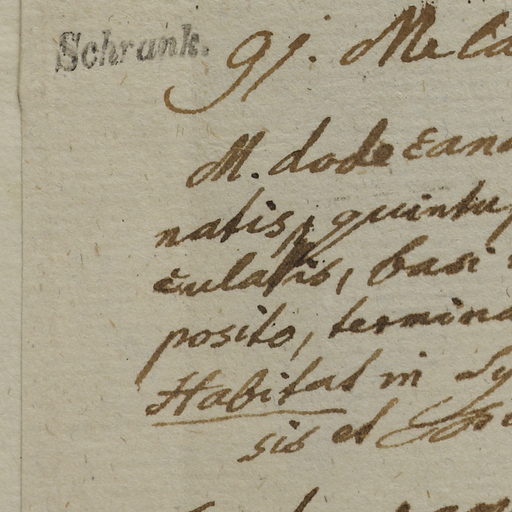 Schrank.
91. Mela
M. dodecand
natis, quintup
culatis, basi
posito, termina
Habitat in Sy
sis et